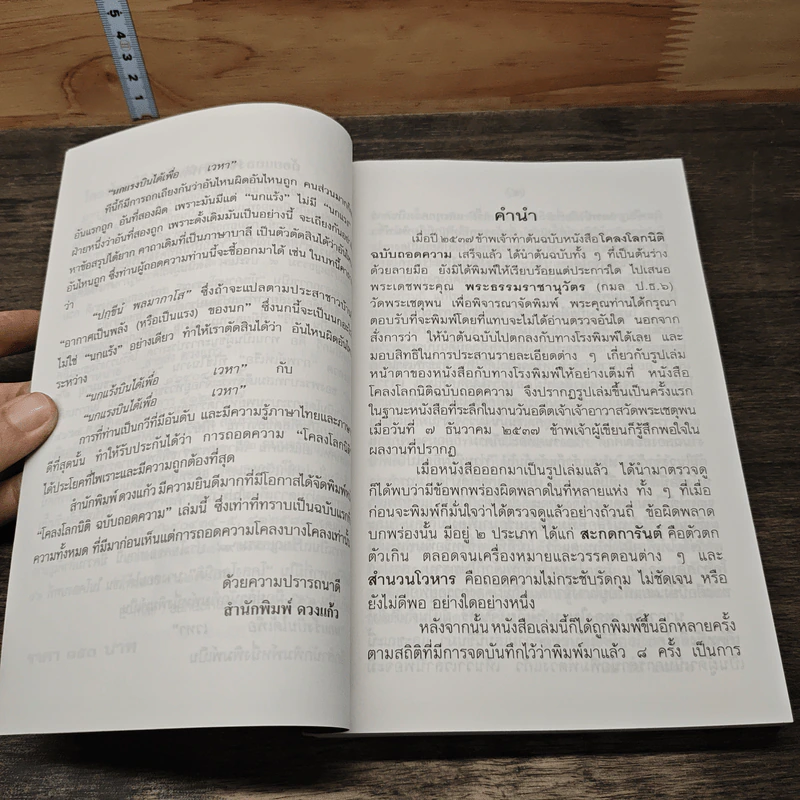 5 4 3 2 1
"นกแรงบินได้เพื่อ เวหา"
ที่นี้ก็มีการถกเถียงกันว่าอันไหนผิดอันไหนถูก คนส่วนมาก
อันแรกถูก อันที่สองผิด เพราะมันมีแต่ "นกแร้ง" ไม่มี
ฝ่ายหนึ่งว่าอันที่สองถูก เพราะดั้งเดิมมันเป็นอย่างนี้ จะเถียงกัน
หาข้อสรุปได้ยาก คาถาเดิมที่เป็นภาษาบาลี เป็นตัวตัดสินได้ว่า
อันไหนถูก ซึ่งท่านผู้ถอดความท่านนี้จะชี้ออกมาได้ เช่น ในบทนี้
ว่า
"ปกฺขีนํ พลมากาโส" ซึ่งถ้าจะแปลตามประสาชาวบ้าน
"อากาศเป็นพลัง (หรือเป็นแรง) ของนก" ซึ่งนกนี้จะเป็นนก
ไม่ใช่ "นกแร้ง" อย่างเดียว ทำให้เราตัดสินได้ว่า อันไหนผิดอัน
ระหว่าง
"นกแร้งบินได้เพื่อ เวหา" กับ
"นกแรงบินได้เพื่อ เวหา"
การที่ท่านเป็นกวีที่มีอันดับ และมีความรู้ภาษาไทยและ
ดีที่สุดนั้น ทำให้รับประกันได้ว่า การถอดความ "โคลงโลกนิติ
ได้ประโยคที่ไพเราะและมีความถูกต้องที่สุด
สำนักพิมพ์ ดวงแก้ว มีความยินดีมากที่มีโอกาสได้จัดพิมพ์
"โคลงโลกนิติ ฉบับถอดความ" เล่มนี้ ซึ่งเท่าที่ทราบเป็นฉบับแรก
ความทั้งหมด ที่มีมาก่อนเห็นแต่การถอดความโคลงบางโคลงเท่านั้น
ด้วยความปรารถนาดี
สำนักพิมพ์ ดวงแก้ว
คำนำ
เมื่อปี ๒๕๓๗ ข้าพเจ้าทำต้นฉบับหนังสือโคลงโลกนิติ
ฉบับถอดความ เสร็จแล้ว ได้นำต้นฉบับทั้ง ๆ ที่เป็นต้นร่าง
ด้วยลายมือ ยังมิได้พิมพ์ให้เรียบร้อยแต่ประการใด ไปเสนอ
พระเดชพระคุณ พระธรรมราชานุวัตร (กมล ป.ธ.๖)
วัดพระเชตุพน เพื่อพิจารณาจัดพิมพ์ พระคุณท่านได้กรุณา
ตอบรับที่จะพิมพ์โดยที่แทบจะไม่ได้อ่านตรวจอันใด นอกจาก
สั่งการว่า ให้นำต้นฉบับไปตกลงกับทางโรงพิมพ์ได้เลย และ
มอบสิทธิในการประสานรายละเอียดต่าง ๆ เกี่ยวกับรูปเล่ม
หน้าตาของหนังสือกับทางโรงพิมพ์ให้อย่างเต็มที่ หนังสือ
โคลงโลกนิติฉบับถอดความ จึงปรากฏรูปเล่มขึ้นเป็นครั้งแรก
ในฐานะหนังสือที่ระลึกในงานวันอดีตเจ้าเจ้าอาวาสวัดพระเชตุพน
เมื่อวันที่ ๗ ธันวาคม ๒๕๓๗ ข้าพเจ้าผู้เขียนก็รู้สึกพอใจใน
ผลงานที่ปรากฏ
เมื่อหนังสือออกมาเป็นรูปเล่มแล้ว ได้นำมาตรวจดู
ก็ได้พบว่ามีข้อพกพร่องผิดพลาดในที่หลายแห่ง ทั้ง ๆ ที่เมื่อ
ก่อนจะพิมพ์ก็มั่นใจว่าได้ตรวจดูแล้วอย่างถ้วนถี่ ข้อผิดพลาด
บกพร่องนั้น มีอยู่ ๒ ประเภท ได้แก่ สะกดการันต์ คือตัวตก
ตัวเกิน ตลอดจนเครื่องหมายและวรรคตอนต่าง ๆ และ
สำนวนโวหาร คือถอดความไม่กระชับรัดกุม ไม่ชัดเจน หรือ
ยังไม่ดีพอ อย่างใดอย่างหนึ่ง
หลังจากนั้น หนังสือเล่มนี้ก็ได้ถูกพิมพ์ขึ้นอีกหลายครั้ง
ตามสถิติที่มีการจดบันทึกไว้ว่าพิมพ์มาแล้ว ๘ ครั้ง เป็นการ